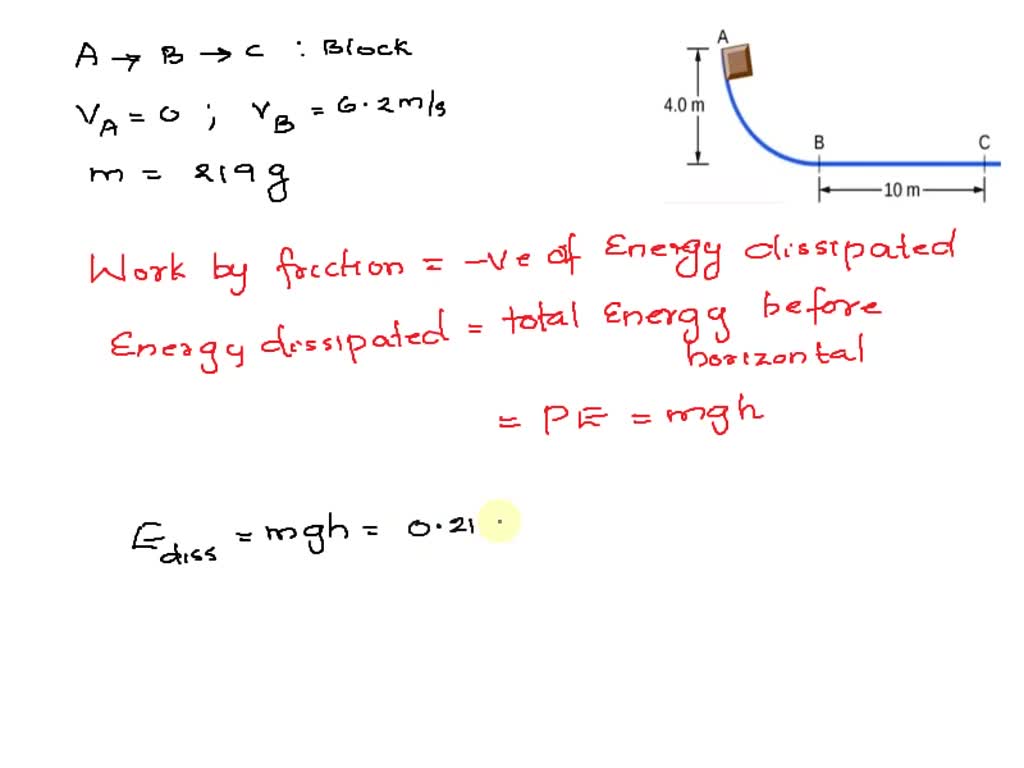 A → B → C : Block
V_A = 0 ; V_B = 6.2 m/s
m = 219 g
A
4.0 m
B
C
10 m
Work by friction = -ve of Energy dissipated
Energy dissipated = total Energy before
horizontal
= PE = mgh
E_diss = mgh = 0.21